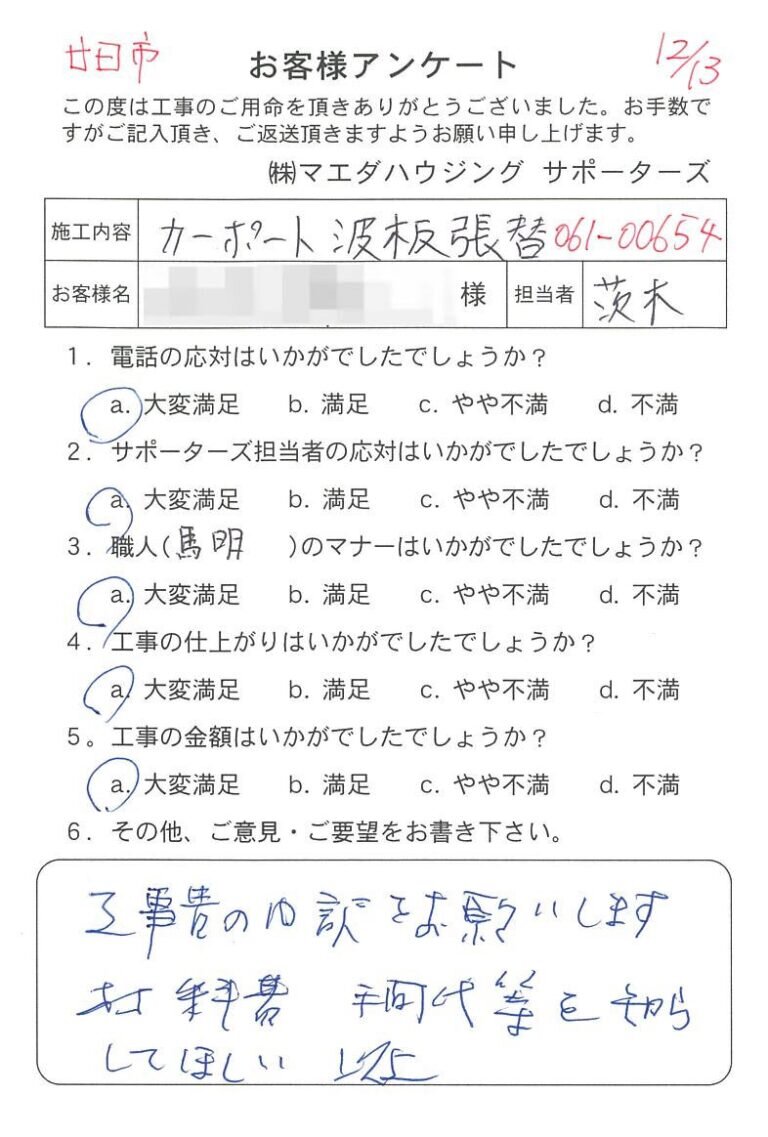 廿日市 お客様アンケート 12/13
この度は工事のご用命を頂きありがとうございました。お手数で
すがご記入頂き、ご返送頂きますようお願い申し上げます。
㈱マエダハウジング サポーターズ
施工内容 カーポート波板張替 061-00654
お客様名 様 担当者 茨木
1. 電話の応対はいかがでしたでしょうか？
a. 大変満足 b. 満足 c. やや不満 d. 不満
2. サポーターズ担当者の応対はいかがでしたでしょうか？
a. 大変満足 b. 満足 c. やや不満 d. 不満
3. 職人(馬明 )のマナーはいかがでしたでしょうか？
a. 大変満足 b. 満足 c. やや不満 d. 不満
4. 工事の仕上がりはいかがでしたでしょうか？
a. 大変満足 b. 満足 c. やや不満 d. 不満
5。工事の金額はいかがでしたでしょうか？
a. 大変満足 b. 満足 c. やや不満 d. 不満
6. その他、ご意見・ご要望をお書き下さい。
工事費の内訳をお願いします
材料費 手間代等を
してほしい 以上